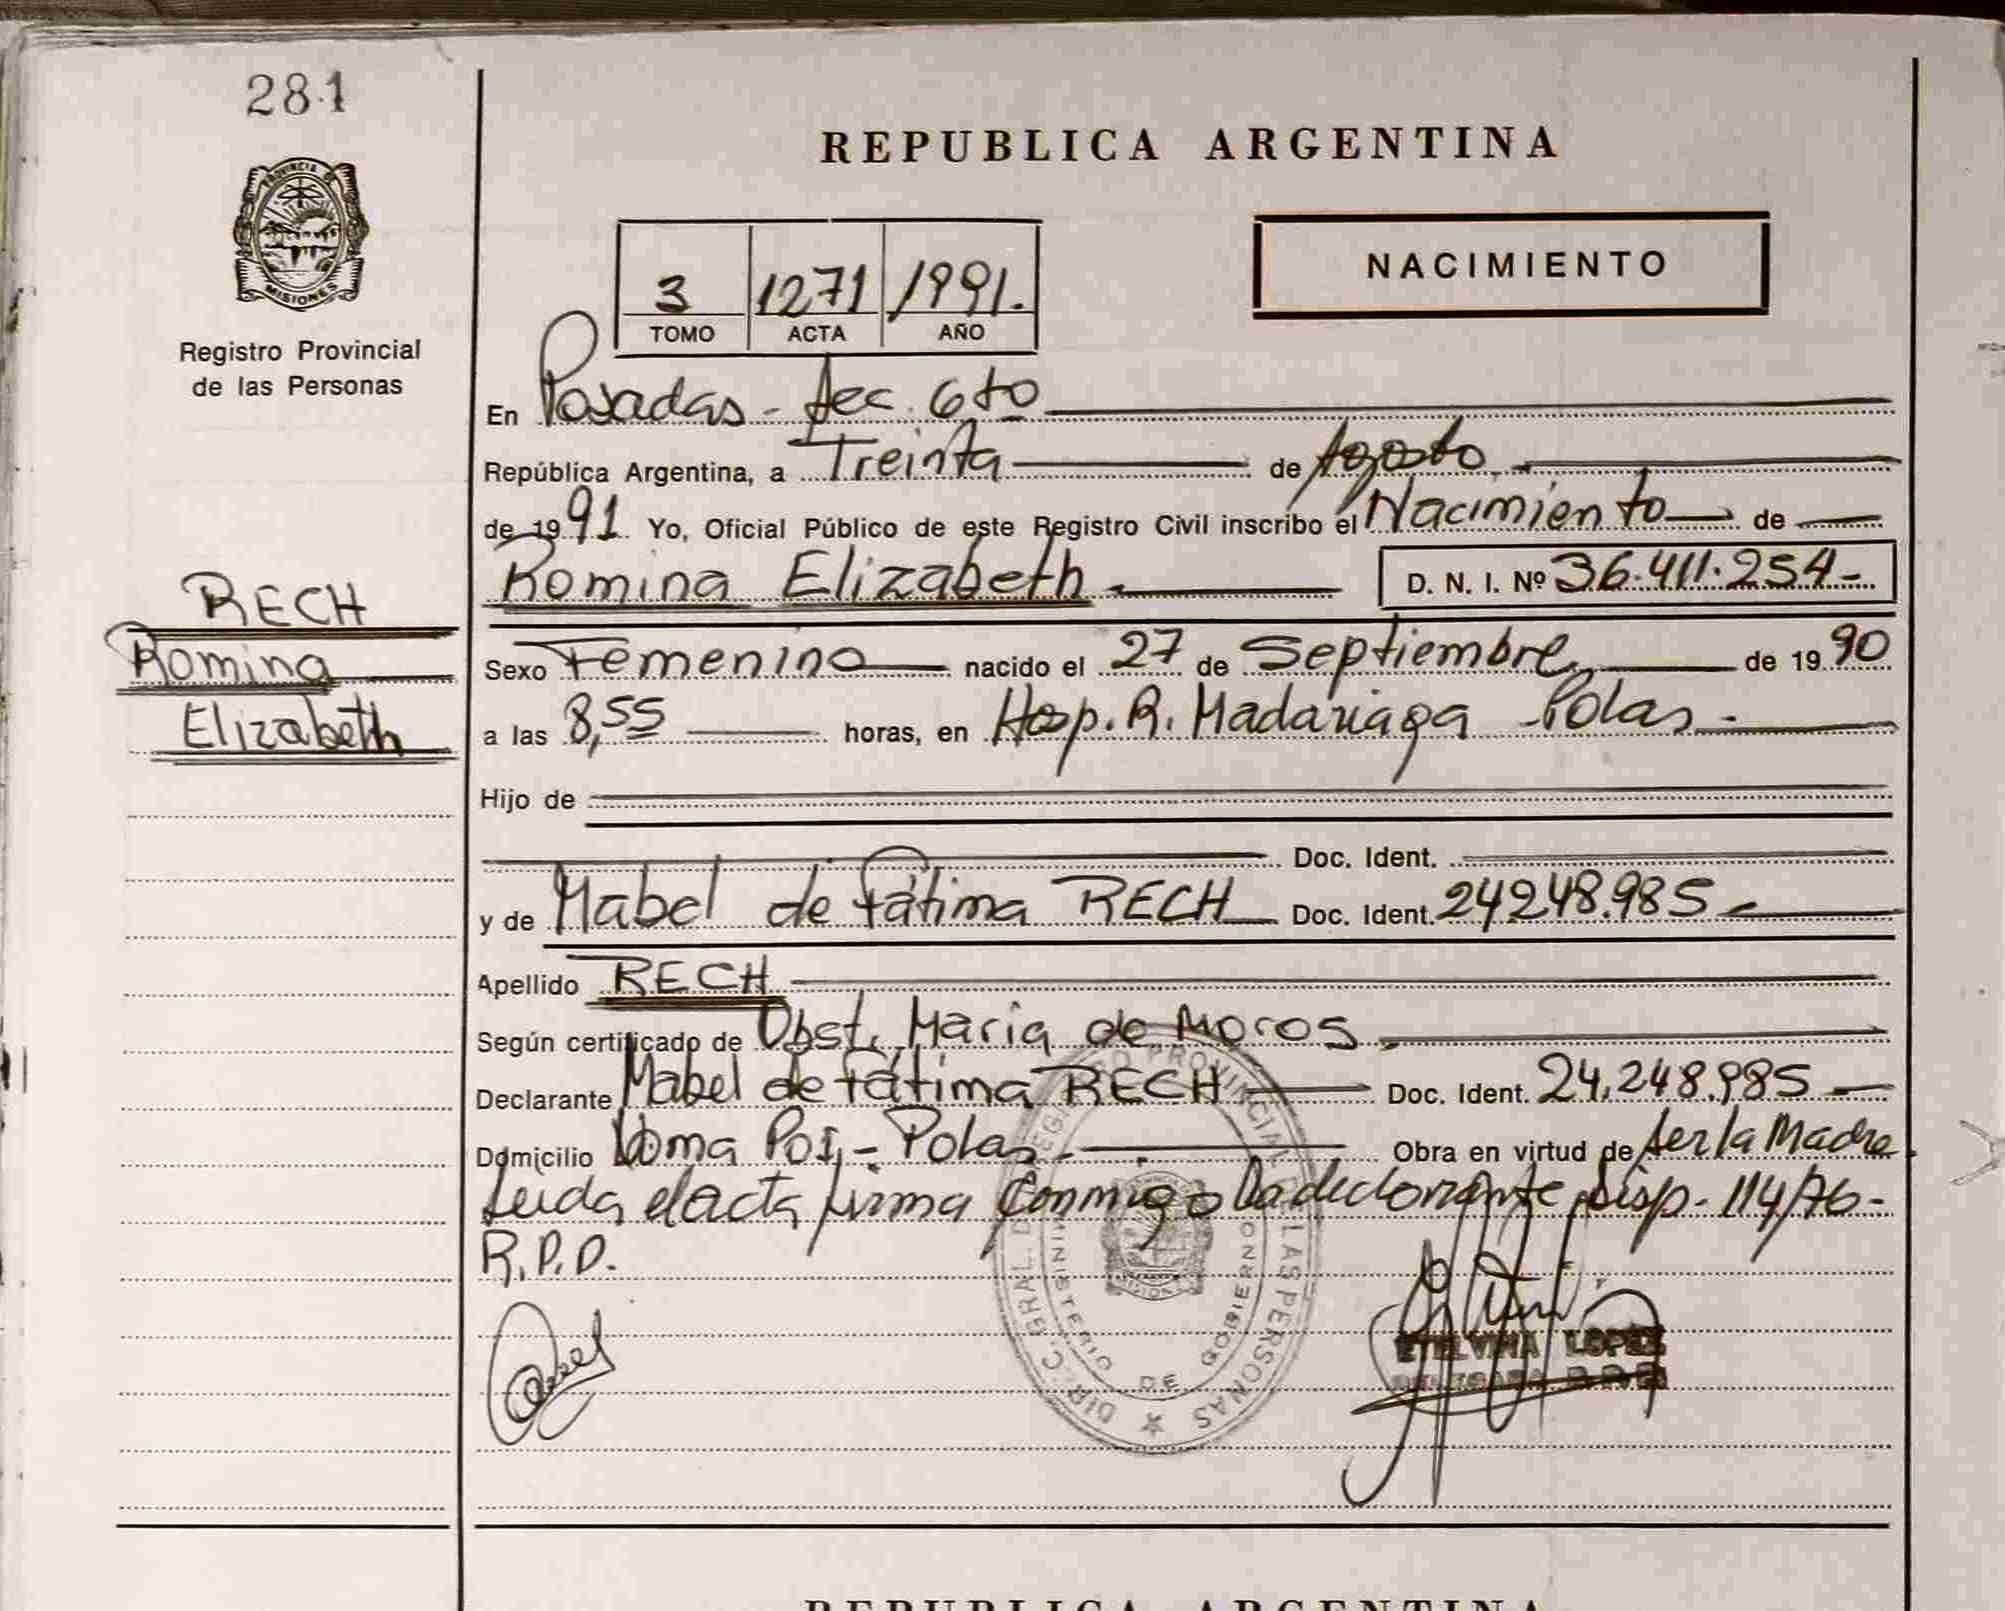 281
REPUBLICA ARGENTINA
PROVINCIA DE
MISIONES
NACIMIENTO
3 1271 1991.
TOMO ACTA AÑO
Registro Provincial
de las Personas
En Posadas - Sec. 6to
República Argentina, a Treinta de Agosto
de 1991 Yo, Oficial Público de este Registro Civil inscribo el Nacimiento de
Romina Elizabeth D. N. I. Nº 36.411.254-
RECH
Romina
Elizabeth
Sexo Femenino nacido el 27 de Septiembre de 1990
a las 8,55 horas, en Hosp. R. Madariaga Pdas -
Hijo de
Doc. Ident.
y de Mabel de Fátima RECH Doc. Ident. 24248.985 -
Apellido RECH
Según certificado de Obst. Maria de Moros
Declarante Mabel de Fátima RECH Doc. Ident. 24.248.985 -
Domicilio Loma Poi, - Pdas Obra en virtud de ser la Madre
Leida el acta firma conmigo la declarante Disp. 114/76 -
R.P.D.
DIRC. GRAL. DEL REGISTRO PROVINCIAL DE LAS PERSONAS
MINISTERIO DE GOBIERNO
ETELVINA LOPEZ
REPUBLICA ARGENTINA